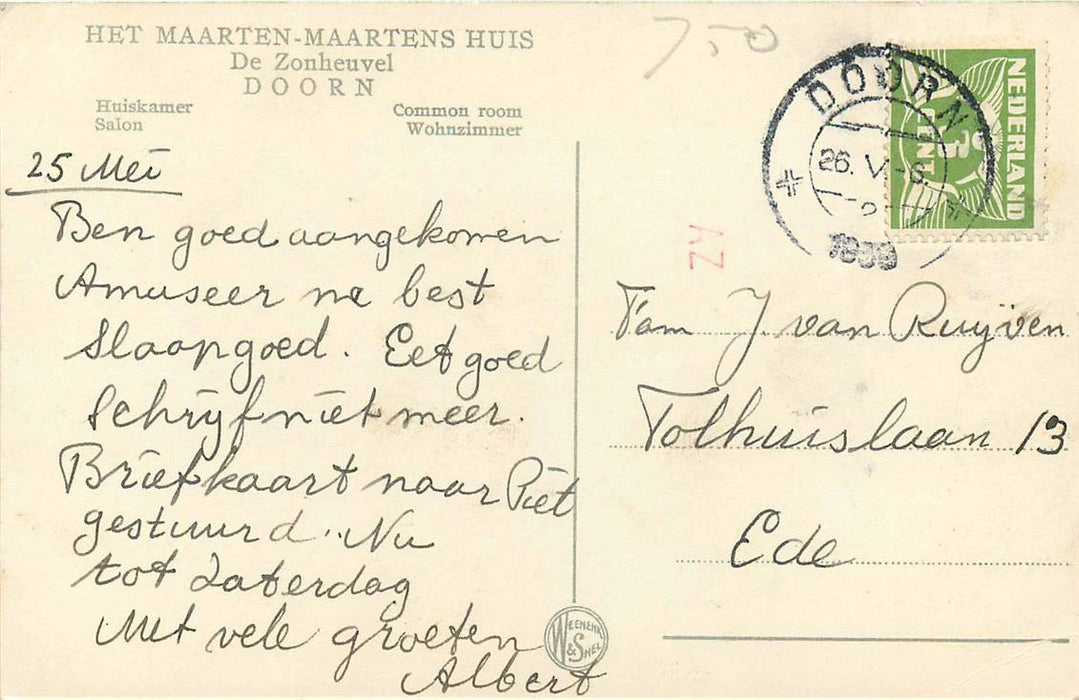 HET MAARTEN-MAARTENS HUIS
De Zonheuvel
DOORN
Huiskamer
Salon
Common room
Wohnzimmer
7,50
DOORN
26. V. -6.
1939
NEDERLAND
3
CENT
AZ
25 Mei
Ben goed aangekomen
Amuseer me best
Slaap goed. Eet goed
Schrijf niet meer.
Briefkaart naar Piet
gestuurd. Nu
tot Zaterdag
Met vele groeten
Albert
Fam J van Ruijven
Tolhuislaan 13
Ede
WEENENK
& SNEL